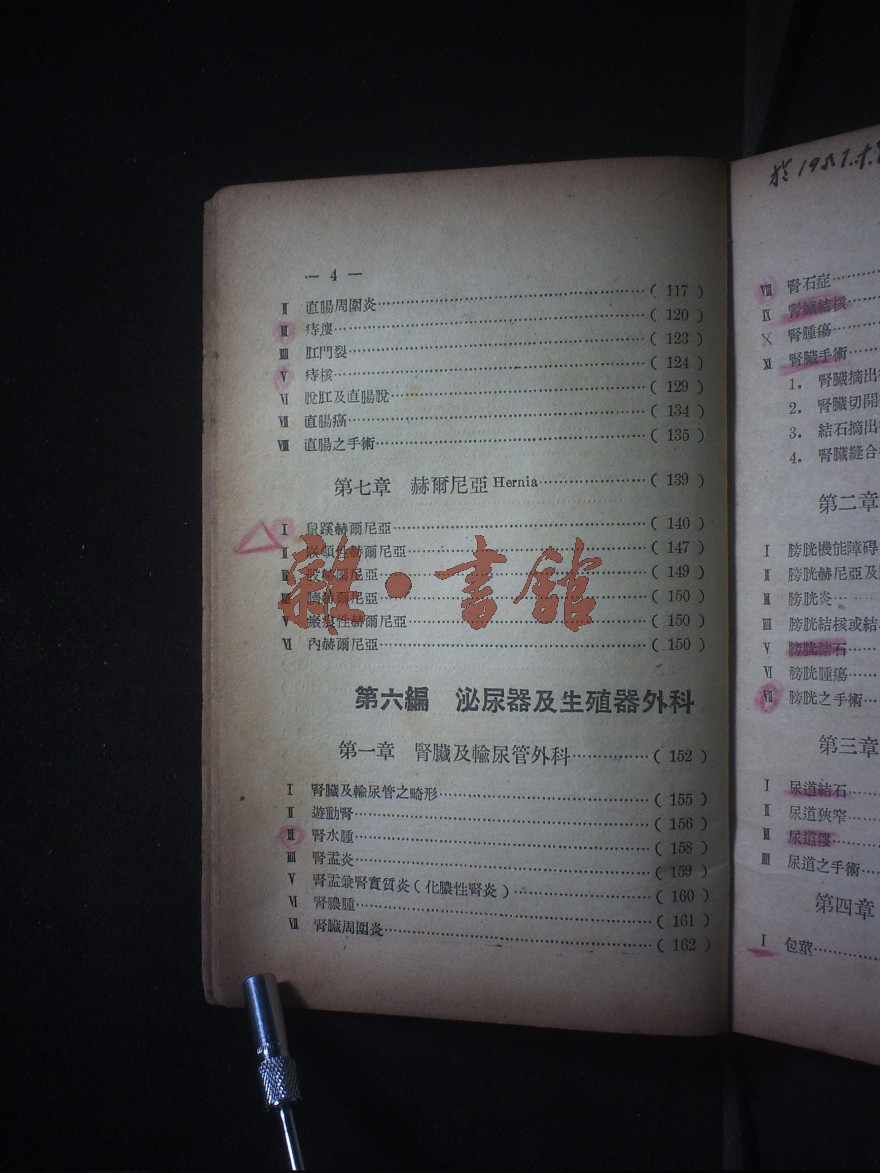 — 4 —
Ⅱ 直腸周圍炎……(117)
Ⅲ 痔瘻……(120)
ⅡⅡ 肛門裂……(123)
Ⅴ 痔核……(124)
Ⅵ 脫肛及直腸脫……(129)
Ⅶ 直腸癌……(134)
Ⅷ 直腸之手術……(135)
第七章 赫爾尼亞 Hernia……(139)
Ⅰ 鼠蹊赫爾尼亞……(140)
Ⅱ 嵌頓性赫爾尼亞……(147)
股赫爾尼亞……(149)
臍赫爾尼亞……(150)
Ⅴ 瘢痕性赫爾尼亞……(150)
Ⅵ 內赫爾尼亞……(150)
雜·書館
第六編 泌尿器及生殖器外科
第一章 腎臟及輸尿管外科……(152)
Ⅰ 腎臟及輸尿管之畸形……(155)
Ⅱ 遊動腎……(156)
Ⅲ 腎水腫……(158)
ⅡⅡ 腎盂炎……(159)
Ⅴ 腎盂兼腎實質炎(化膿性腎炎)……(160)
Ⅵ 腎膿腫……(161)
Ⅶ 腎臟周圍炎……(162)
於195
Ⅷ 腎石症……
Ⅸ 腎臟結核……
Ⅹ 腎腫瘍……
Ⅺ 腎臟手術……
1. 腎臟摘出
2. 腎臟切開
3. 結石摘出
4. 腎臟縫合
第二章
Ⅰ 膀胱機能障碍
Ⅱ 膀胱赫尼亞及
Ⅲ 膀胱炎……
ⅡⅡ 膀胱結核或結
Ⅴ 膀胱結石……
Ⅵ 膀胱腫瘍……
Ⅶ 膀胱之手術……
第三章
Ⅰ 尿道結石……
Ⅱ 尿道狹窄……
Ⅲ 尿道瘻……
ⅡⅡ 尿道之手術……
第四章
Ⅰ 包莖……